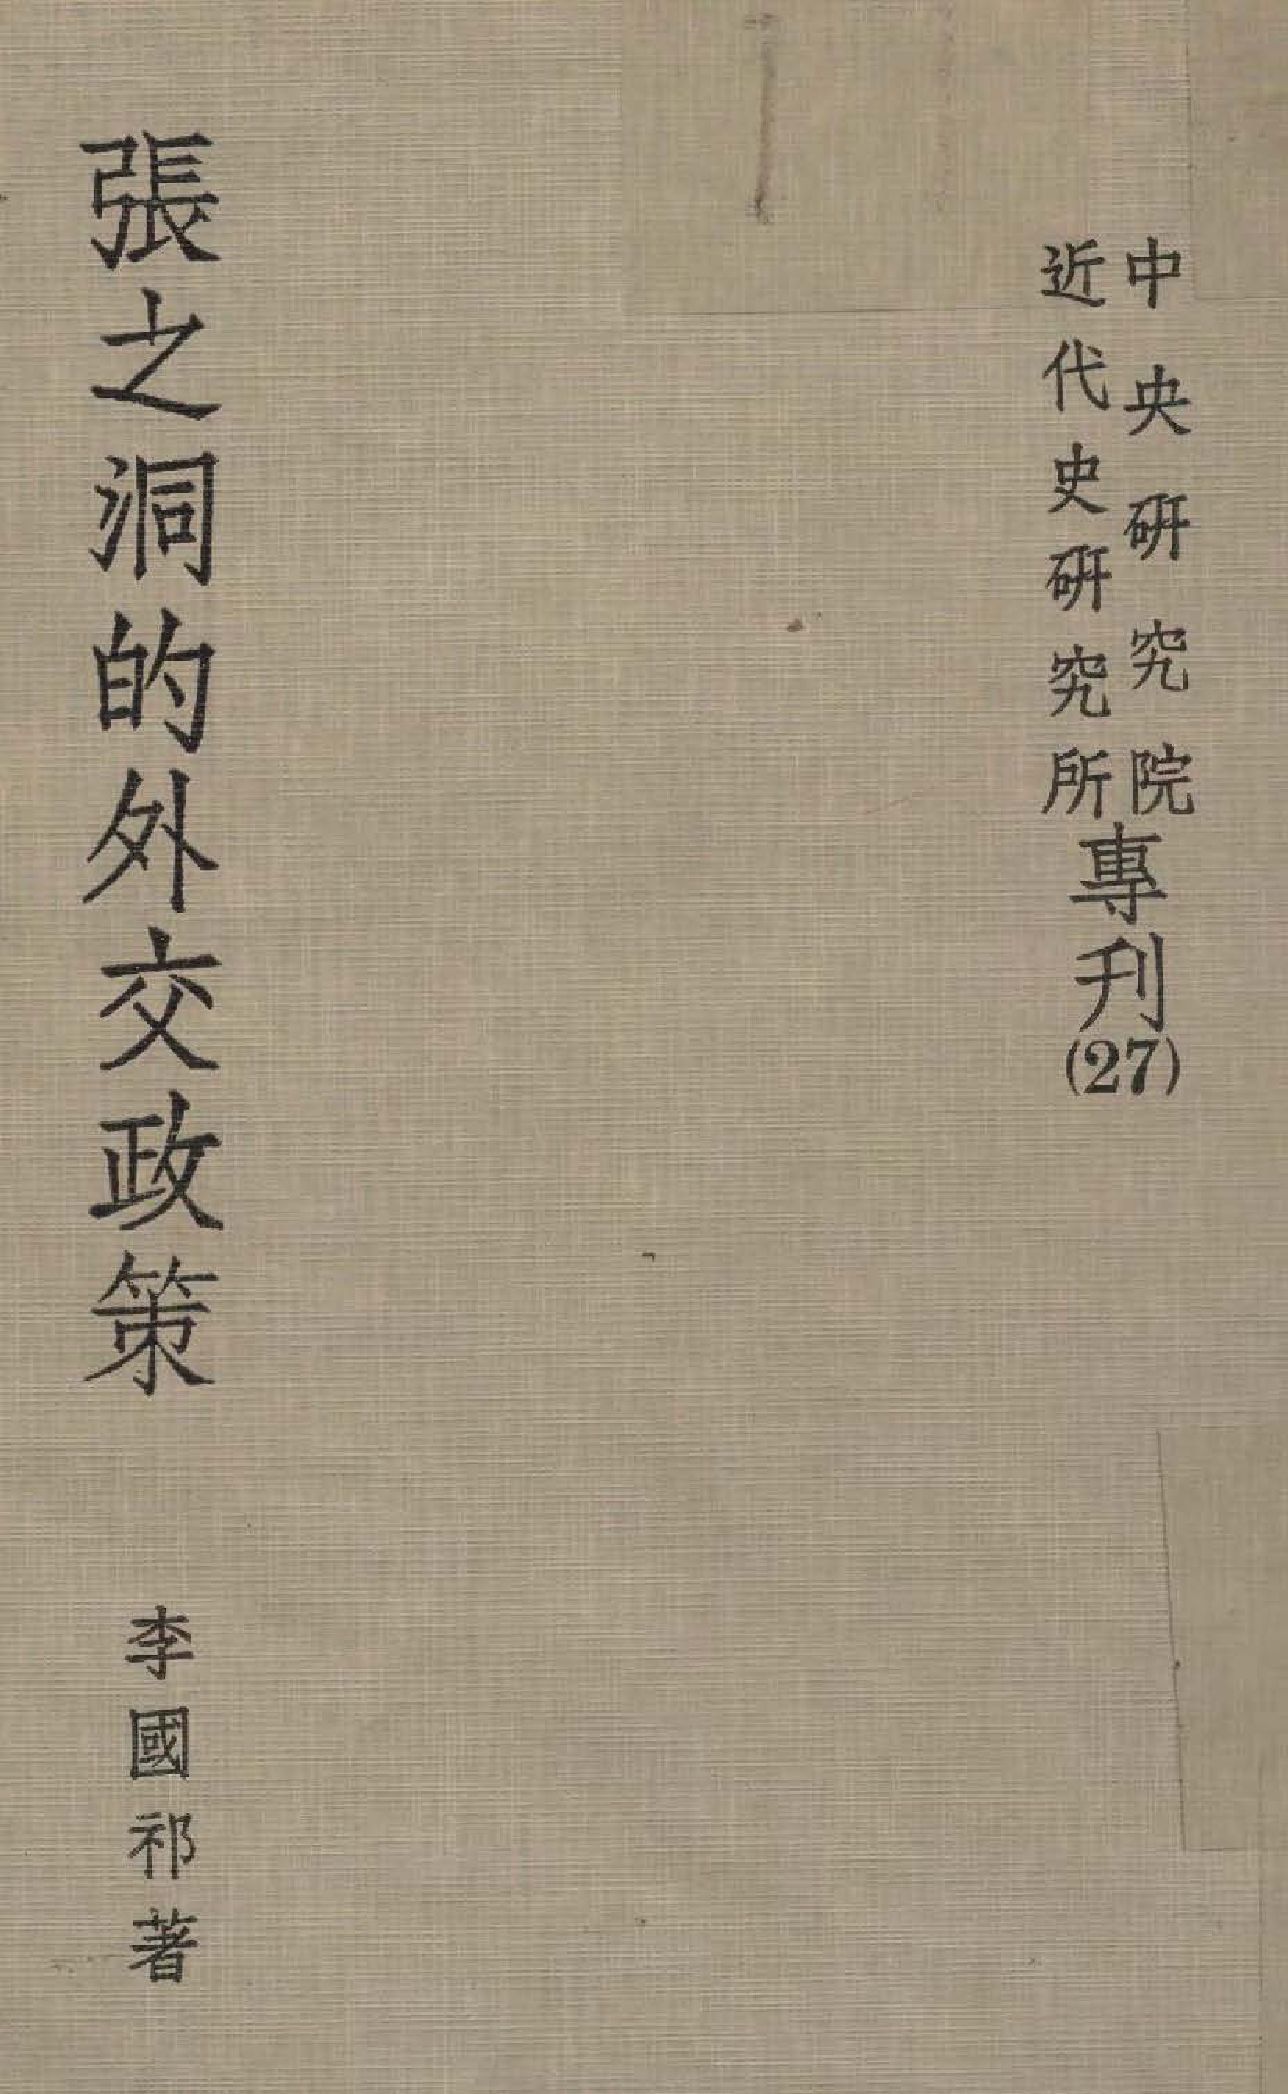 中央研究院
近代史研究所
專刊(27)
張之洞的外交政策
李國祁著